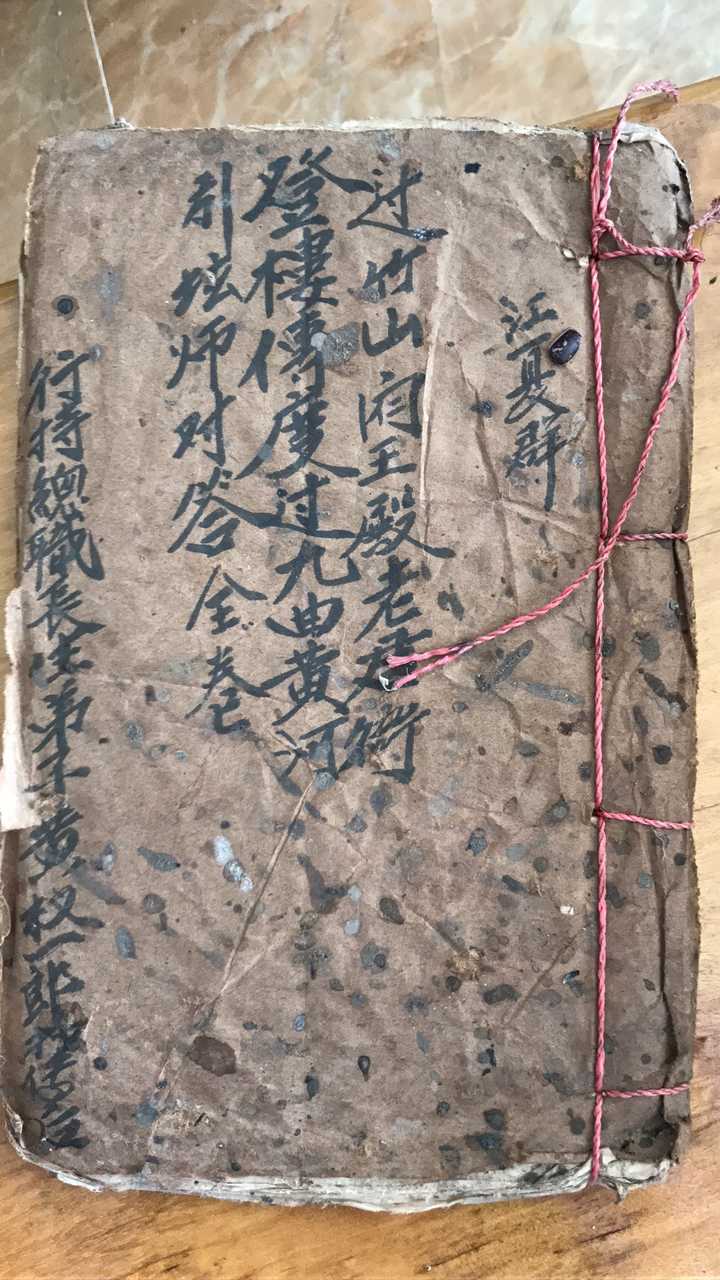 江夏群
过竹山闰王殿老君衙
登樓傳度过九曲黄河
引坛师对答全卷
行持總職長生弟子黄权一郎